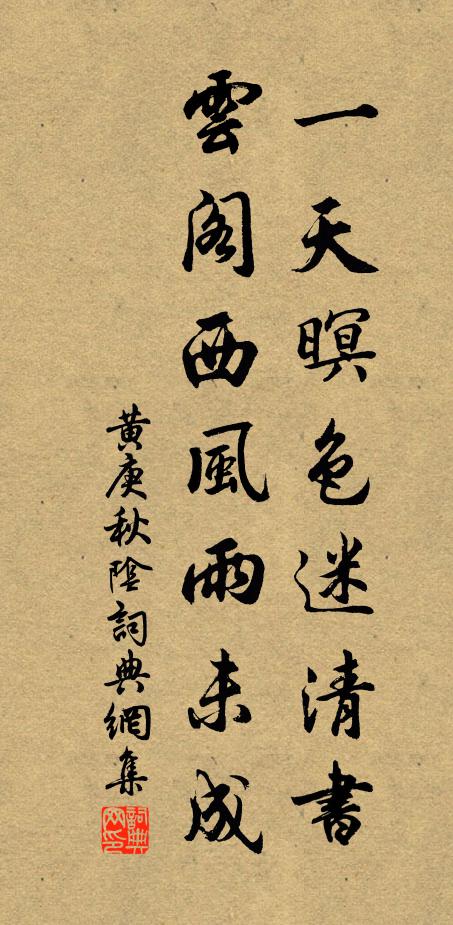 一天暝色迷清書
雲閣西風雨未成
黄庚秋陰詞典網集
詞典網印